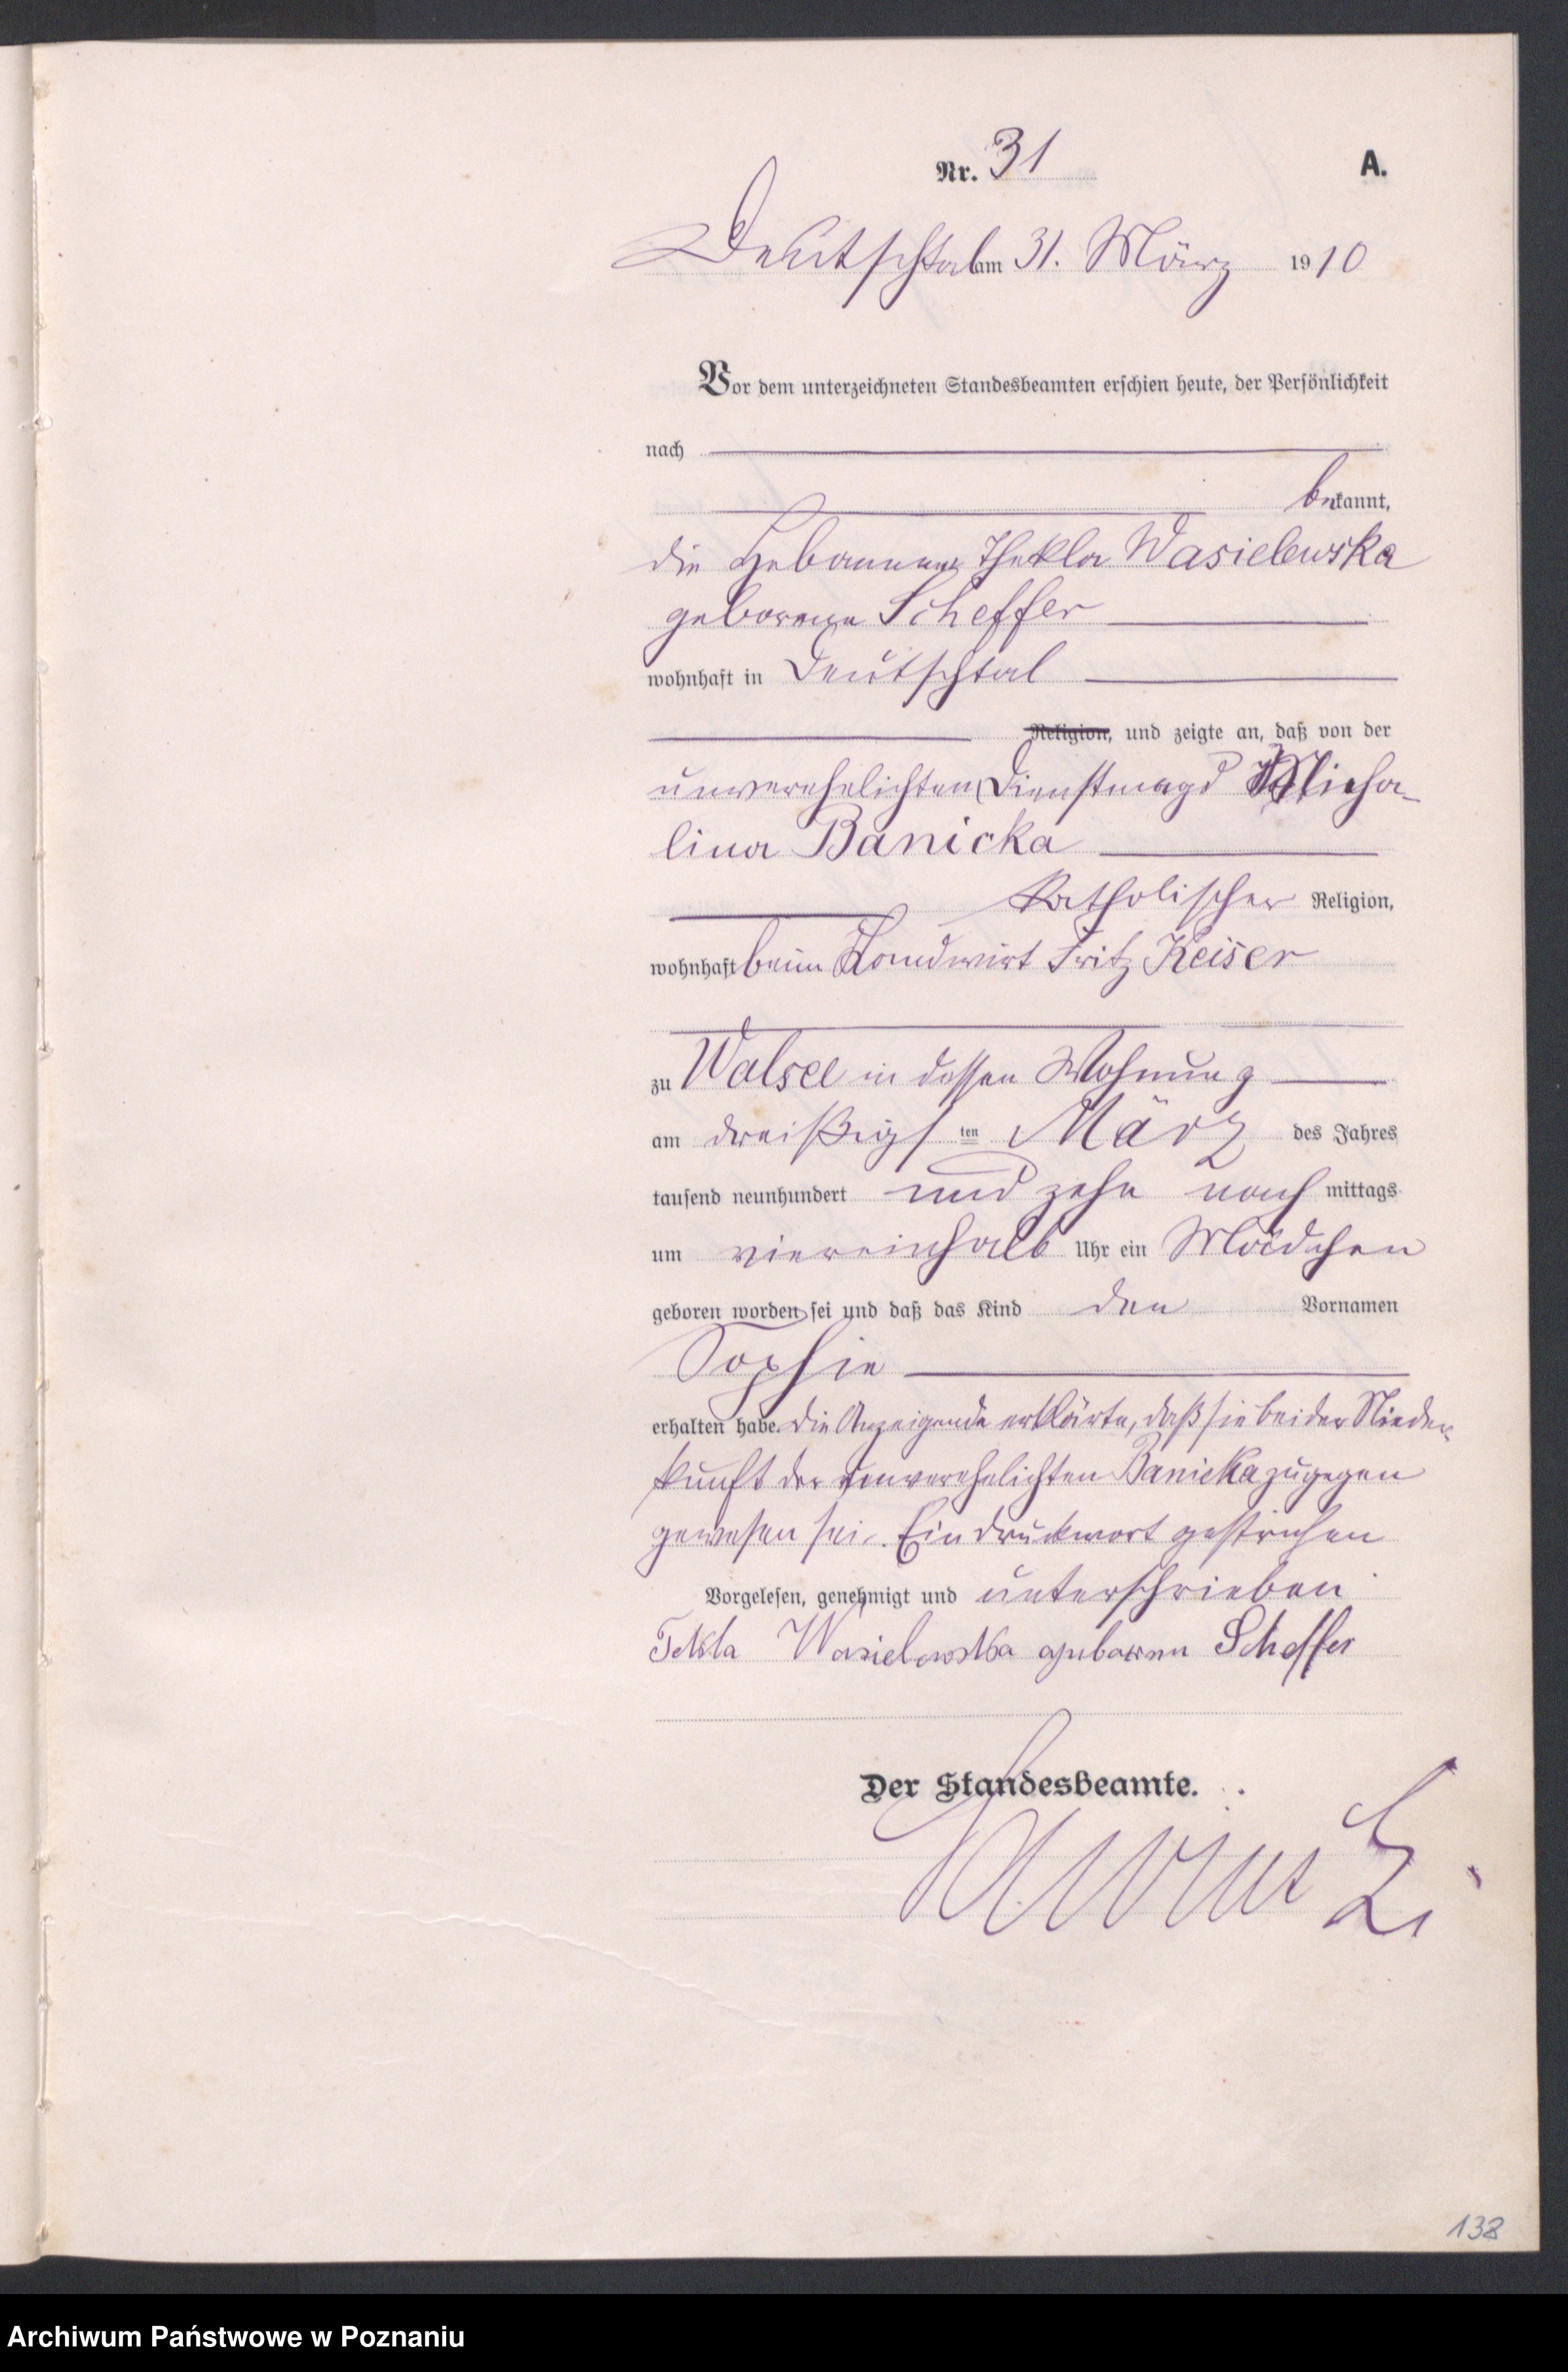 Nr. 31 A.
Deutschtal am 31. März 1910
Vor dem unterzeichneten Standesbeamten erschien heute, der Persönlichkeit
nach
bekannt,
die Hebamme Thekla Wasielewska
geborene Scheffer
wohnhaft in Deutschtal
Religion, und zeigte an, daß von der
unverehelichten Dienstmagd Micha-
lina Banicka
katholischer Religion,
wohnhaft beim Landwirt Fritz Keiser
zu Walsee in dessen Wohnung
am dreißigsten März des Jahres
tausend neunhundert und zehn nachmittags
um viereinhalb Uhr ein Mädchen
geboren worden sei und daß das Kind den Vornamen
Sophie
erhalten habe. Die Anzeigende erklärte, daß sie bei der Nieder-
kunft der unverehelichten Banicka zugegen
gewesen sei. Ein Druckwort gestrichen
Vorgelesen, genehmigt und unterschrieben
Tekla Wasielewska geboren Scheffer
Der Standesbeamte.
138
Archiwum Państwowe w Poznaniu